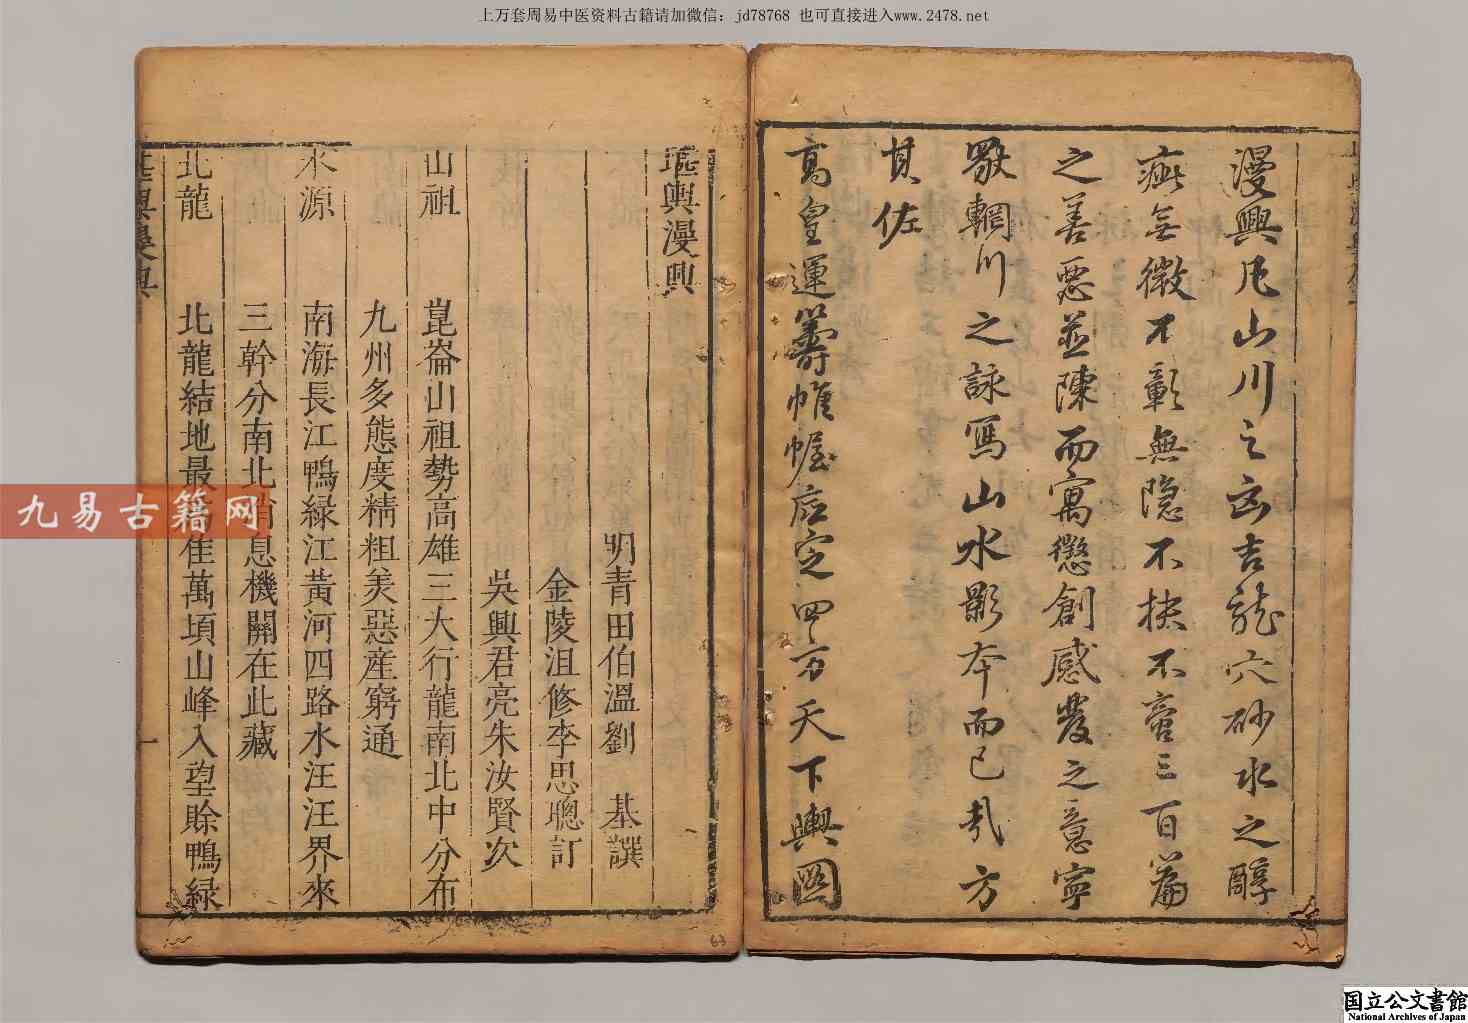 上万套周易中医资料古籍请加微信：jd78768 也可直接进入www.2478.net
漫興凡山川之凶吉龍穴砂水之醇
疵無微不彰無隐不抉不啻三百篇
之善惡並陳而寓懲創感發之意寧
數輞川之詠寫山水影本而已哉方
其佐
高皇運籌帷幄底定四方天下輿圖
堪輿漫興
明青田伯溫劉 基譔
金陵沮修李思聰訂
吳興君亮朱汝賢次
山祖 崑崙山祖勢高雄三大行龍南北中分布
九州多態度精粗美惡産窮通
水源 南海長江鴨綠江黃河四路水汪汪界來
三幹分南北消息機關在此藏
北龍 北龍結地最佳萬頃山峰入望賒鴨綠
堪輿漫興
一
九易古籍网
63
国立公文書館
National Archives of Japan